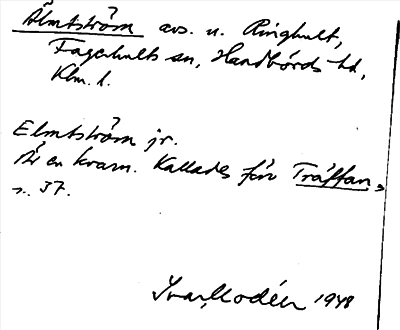 Älmtström avs. u. Ringhult,
Fagerhults sn, Handbörds hd,
Klm. l.
Elmtström jr.
Är en kvarn. Kallades förr Träffan,
n. 37.
Ivar Modéer 1948